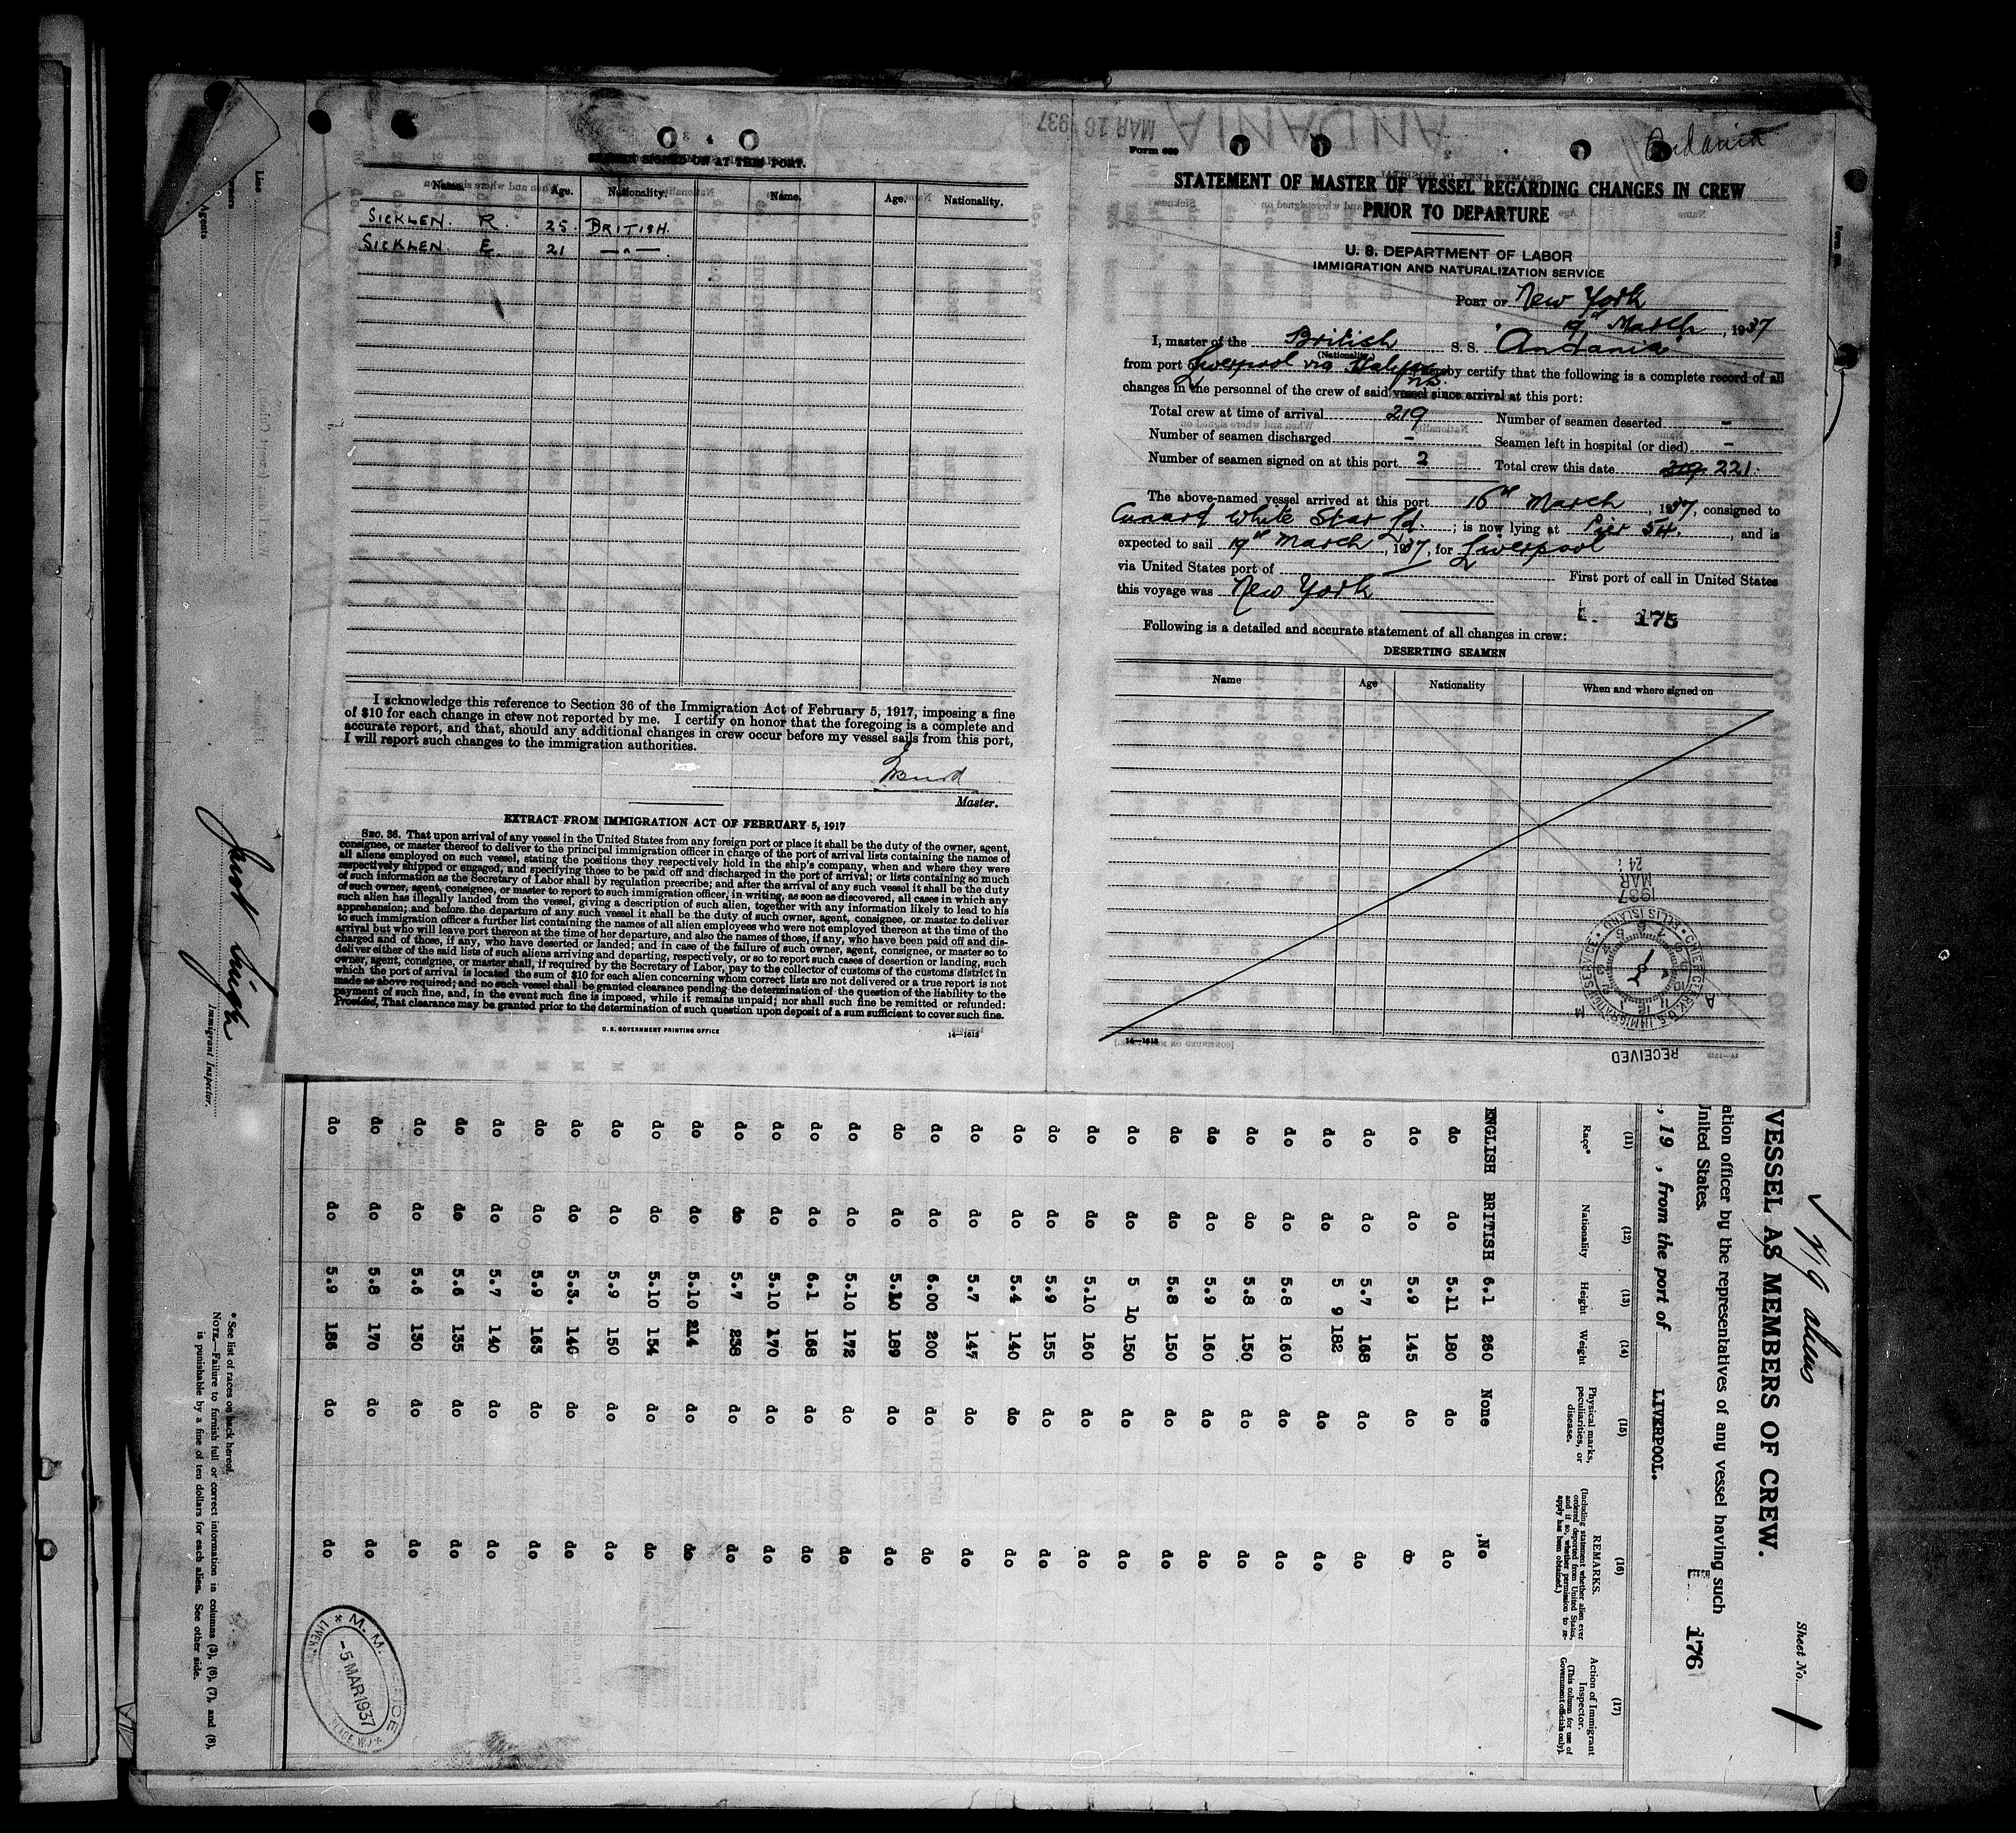 SEAMEN SIGNED ON AT THIS PORT.
Name. Age. Nationality. Name. Age. Nationality.
SICKLEN. R. 25. BRITISH.
SICKLEN E. 21 —"—
I acknowledge this reference to Section 36 of the Immigration Act of February 5, 1917, imposing a fine
of $10 for each change in crew not reported by me. I certify on honor that the foregoing is a complete and
accurate report, and that, should any additional changes in crew occur before my vessel sails from this port,
I will report such changes to the immigration authorities.
Master.
EXTRACT FROM IMMIGRATION ACT OF FEBRUARY 5, 1917
SEC. 36. That upon arrival of any vessel in the United States from any foreign port or place it shall be the duty of the owner, agent,
consignee, or master thereof to deliver to the principal immigration officer in charge of the port of arrival lists containing the names of
all aliens employed on such vessel, stating the positions they respectively hold in the ship's company, when and where they were
respectively shipped or engaged, and specifying those to be paid off and discharged in the port of arrival; or lists containing so much
of such information as the Secretary of Labor shall by regulation prescribe; and after the arrival of any such vessel it shall be the duty
of such owner, agent, consignee, or master to report to such immigration officer, in writing, as soon as discovered, all cases in which any
such alien has illegally landed from the vessel, giving a description of such alien, together with any information likely to lead to his
apprehension; and before the departure of any such vessel it shall be the duty of such owner, agent, consignee, or master to deliver
to such immigration officer a further list containing the names of all alien employees who were not employed thereon at the time of the
arrival but who will leave port thereon at the time of her departure, and also the names of those, if any, who have been paid off and dis-
charged and of those, if any, who have deserted or landed; and in case of the failure of such owner, agent, consignee, or master so to
deliver either of the said lists of such aliens arriving and departing, respectively, or so to report such cases of desertion or landing, such
owner, agent, consignee, or master shall, if required by the Secretary of Labor, pay to the collector of customs of the customs district in
which the port of arrival is located the sum of $10 for each alien concerning whom correct lists are not delivered or a true report is not
made as above required; and no such vessel shall be granted clearance pending the determination of the question of the liability to the
payment of such fine, and, in the event such fine is imposed, while it remains unpaid; nor shall such fine be remitted or refunded:
Provided, That clearance may be granted prior to the determination of such question upon deposit of a sum sufficient to cover such fine.
U. S. GOVERNMENT PRINTING OFFICE 14—1618
ANDANIA MAR 16 1937
Form 689
Andania
STATEMENT OF MASTER OF VESSEL REGARDING CHANGES IN CREW
PRIOR TO DEPARTURE
U. S. DEPARTMENT OF LABOR
IMMIGRATION AND NATURALIZATION SERVICE
PORT OF New York
19th March, 1937
I, master of the British S. S. "Andania"
(Nationality)
from port of Liverpool via Halifax N.S. hereby certify that the following is a complete record of all
changes in the personnel of the crew of said vessel since arrival at this port:
Total crew at time of arrival 219 Number of seamen deserted -
Number of seamen discharged - Seamen left in hospital (or died) -
Number of seamen signed on at this port 2 Total crew this date 219 221.
The above-named vessel arrived at this port 16th March, 1937, consigned to
Cunard White Star Ld.; is now lying at Pier 54., and is
expected to sail 19th March, 1937, for Liverpool
via United States port of — First port of call in United States
this voyage was New York
175
Following is a detailed and accurate statement of all changes in crew:
DESERTING SEAMEN
Name Age Nationality When and where signed on
14—1618
RECEIVED
CHIEF CLERK U.S. IMMIGRATION SERVICE ELLIS ISLAND
1937 MAR 24
Line
Owners
Agents
Immigrant Inspector.
✓ 219 aliens
Sheet No. 1
VESSEL AS MEMBERS OF CREW.
ation officer by the representatives of any vessel having such
United States.
176
, 19 , from the port of LIVERPOOL.
(11) (12) (13) (14) (15) (16) (17)
Race* Nationality Height Weight Physical marks, peculiarities, or disease. REMARKS. (Including statement whether alien ever ordered deported from United States, and if so, whether permission to reapply has been obtained.) Action of Immigrant Inspector. (This column for use of Government officials only).
ENGLISH BRITISH 6.1 260 None No
do do 5.11 180 do do
do do 5.9 145 do do
do do 5.7 168 do do
do do 5 9 182 do do
do do 5.8 160 do do
do do 5.8 150 do do
do do 5.9 160 do do
do do 5.8 150 do do
do do 5 10 150 do do
do do 5.10 160 do do
do do 5.9 155 do do
do do 5.4 140 do do
do do 5.7 147 do do
do do 6.00 200 do do
do do 5.10 189 do do
do do 5.10 172 do do
do do 6.1 168 do do
do do 5.10 170 do do
do do 5.7 238 do do
do do 5.10 214 do do
do do 5.10 154 do do
do do 5.9 150 do do
do do 5.3. 146 do do
do do 5.9 163 do do
do do 5.7 140 do do
do do 5.6 135 do do
do do 5.6 130 do do
do do 5.8 170 do do
do do 5.9 186 do do
M. M. -5 MAR 1937
* See list of races on back hereof.
NOTE.—Failure to furnish full or correct information in columns (3), (6), (7), and (8),
is punishable by a fine of ten dollars for each alien. See other side.